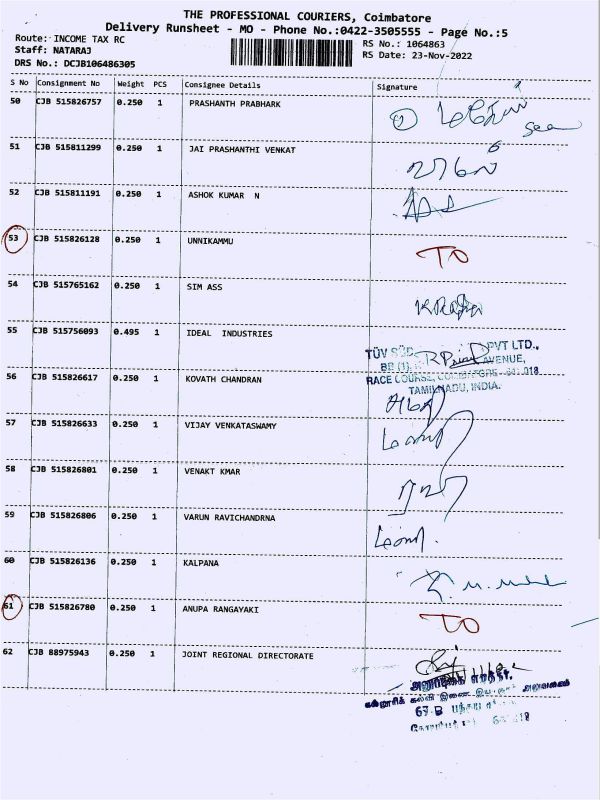 THE PROFESSIONAL COURIERS, Coimbatore
Delivery Runsheet - MO - Phone No.:0422-3505555 - Page No.:5
Route: INCOME TAX RC
RS No.: 1064863
Staff: NATARAJ
RS Date: 23-Nov-2022
DRS No.: DCJB106486305
S No Consignment No Weight PCS Consignee Details Signature
50 CJB 515826757 0.250 1 PRASHANTH PRABHARK
51 CJB 515811299 0.250 1 JAI PRASHANTHI VENKAT
52 CJB 515811191 0.250 1 ASHOK KUMAR N
53 CJB 515826128 0.250 1 UNNIKAMMU TO
54 CJB 515765162 0.250 1 SIM ASS
55 CJB 515756093 0.495 1 IDEAL INDUSTRIES
TÜV SÜD PVT LTD.,
AVENUE,
RACE COURSE, COIMBATORE - 641 018
TAMILNADU, INDIA.
56 CJB 515826617 0.250 1 KOVATH CHANDRAN
57 CJB 515826633 0.250 1 VIJAY VENKATASWAMY
58 CJB 515826801 0.250 1 VENAKT KMAR
59 CJB 515826806 0.250 1 VARUN RAVICHANDRNA
60 CJB 515826136 0.250 1 KALPANA
61 CJB 515826780 0.250 1 ANUPA RANGAYAKI TO
62 CJB 88975943 0.250 1 JOINT REGIONAL DIRECTORATE